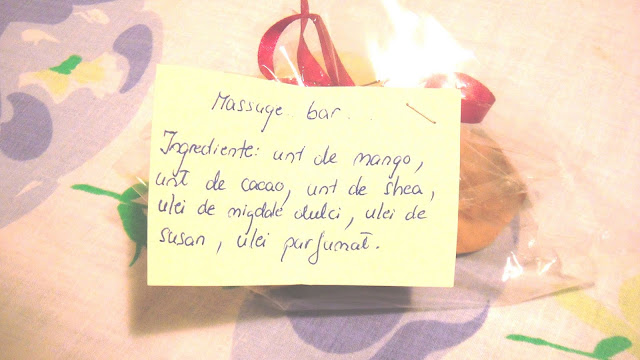 Massage bar...
Ingrediente: unt de mango,
unt de cacao, unt de shea,
ulei de migdale dulci, ulei de
susan, ulei parfumat.